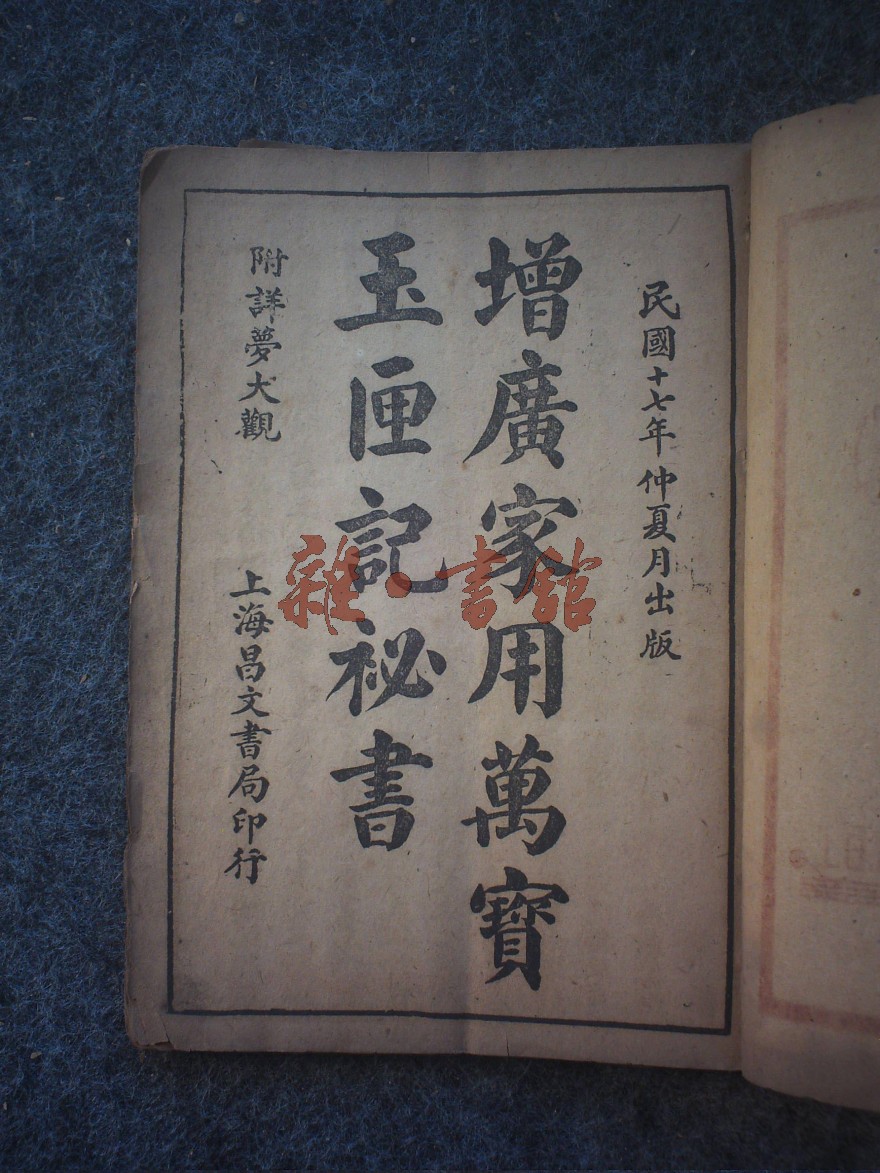 民國十七年仲夏月出版
增廣家用萬寶
玉匣記祕書
附詳夢大觀
上海昌文書局印行
雜·書館